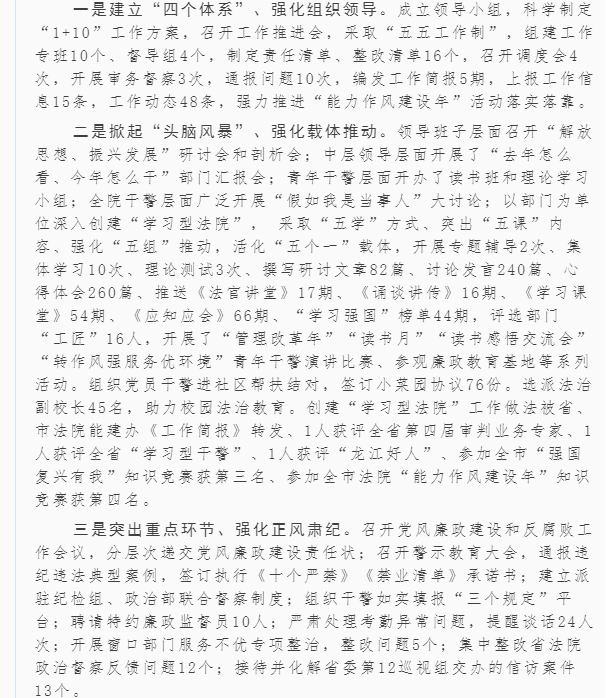 一是建立“四个体系”、强化组织领导。成立领导小组，科学制定
“1+10”工作方案，召开工作推进会，采取“五五工作制”，组建工作
专班10个、督导组4个，制定责任清单、整改清单16个，召开调度会4
次，开展审务督察3次，通报问题10次，编发工作简报5期，上报工作信
息15条，工作动态48条，强力推进“能力作风建设年”活动落实落靠。
二是掀起“头脑风暴”、强化载体推动。领导班子层面召开“解放
思想、振兴发展”研讨会和剖析会；中层领导层面开展了“去年怎么
看、今年怎么干”部门汇报会；青年干警层面开办了读书班和理论学习
小组；全院干警层面广泛开展“假如我是当事人”大讨论；以部门为单
位深入创建“学习型法院”， 采取“五学”方式、突出“五课”内
容、强化“五组”推动，活化“五个一”载体，开展专题辅导2次、集
体学习10次、理论测试3次、撰写研讨文章82篇、讨论发言240篇、心
得体会260篇、推送《法官讲堂》17期、《诵谈讲传》16期、《学习课
堂》54期、《应知应会》66期、“学习强国”榜单44期，评选部门
“工匠”16人，开展了“管理改革年”“读书月”“读书感悟交流会”
“转作风强服务优环境”青年干警演讲比赛、参观廉政教育基地等系列
活动。组织党员干警进社区帮扶结对，签订小菜园协议76份。选派法治
副校长45名，助力校园法治教育。创建“学习型法院”工作做法被省、
市法院能建办《工作简报》转发、1人获评全省第四届审判业务专家、1
人获评全省“学习型干警”、1人获评“龙江好人”、参加全市“强国
复兴有我”知识竞赛获第三名、参加全市法院“能力作风建设年”知识
竞赛获第四名。
三是突出重点环节、强化正风肃纪。召开党风廉政建设和反腐败工
作会议，分层次递交党风廉政建设责任状；召开警示教育大会，通报违
纪违法典型案例，签订执行《十个严禁》《禁业清单》承诺书；建立派
驻纪检组、政治部联合督察制度；组织干警如实填报“三个规定”平
台；聘请特约廉政监督员10人；严肃处理考勤异常问题，提醒谈话24人
次；开展窗口部门服务不优专项整治，整改问题5个；集中整改省法院
政治督察反馈问题12个；接待并化解省委第12巡视组交办的信访案件
13个。